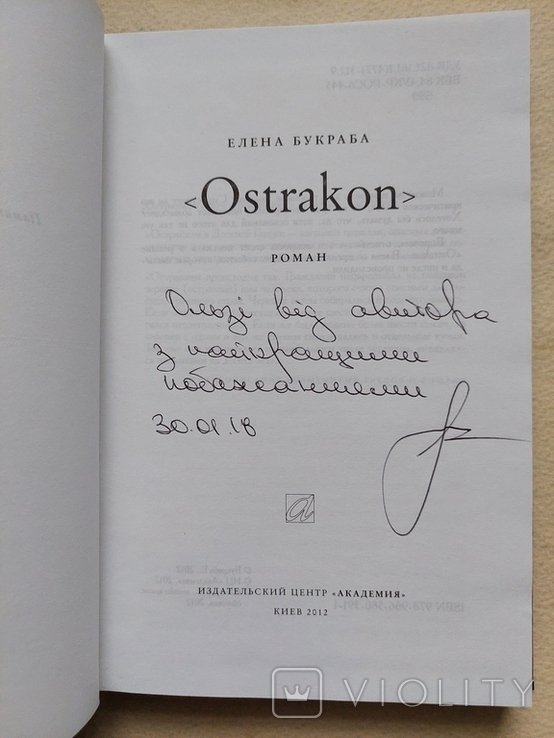 ЕЛЕНА БУКРАБА
<Ostrakon>
РОМАН
Ользі від автора
з найкращими
побажаннями
30.01.18
ИЗДАТЕЛЬСКИЙ ЦЕНТР «АКАДЕМИЯ»
КИЕВ 2012
VIOLITY